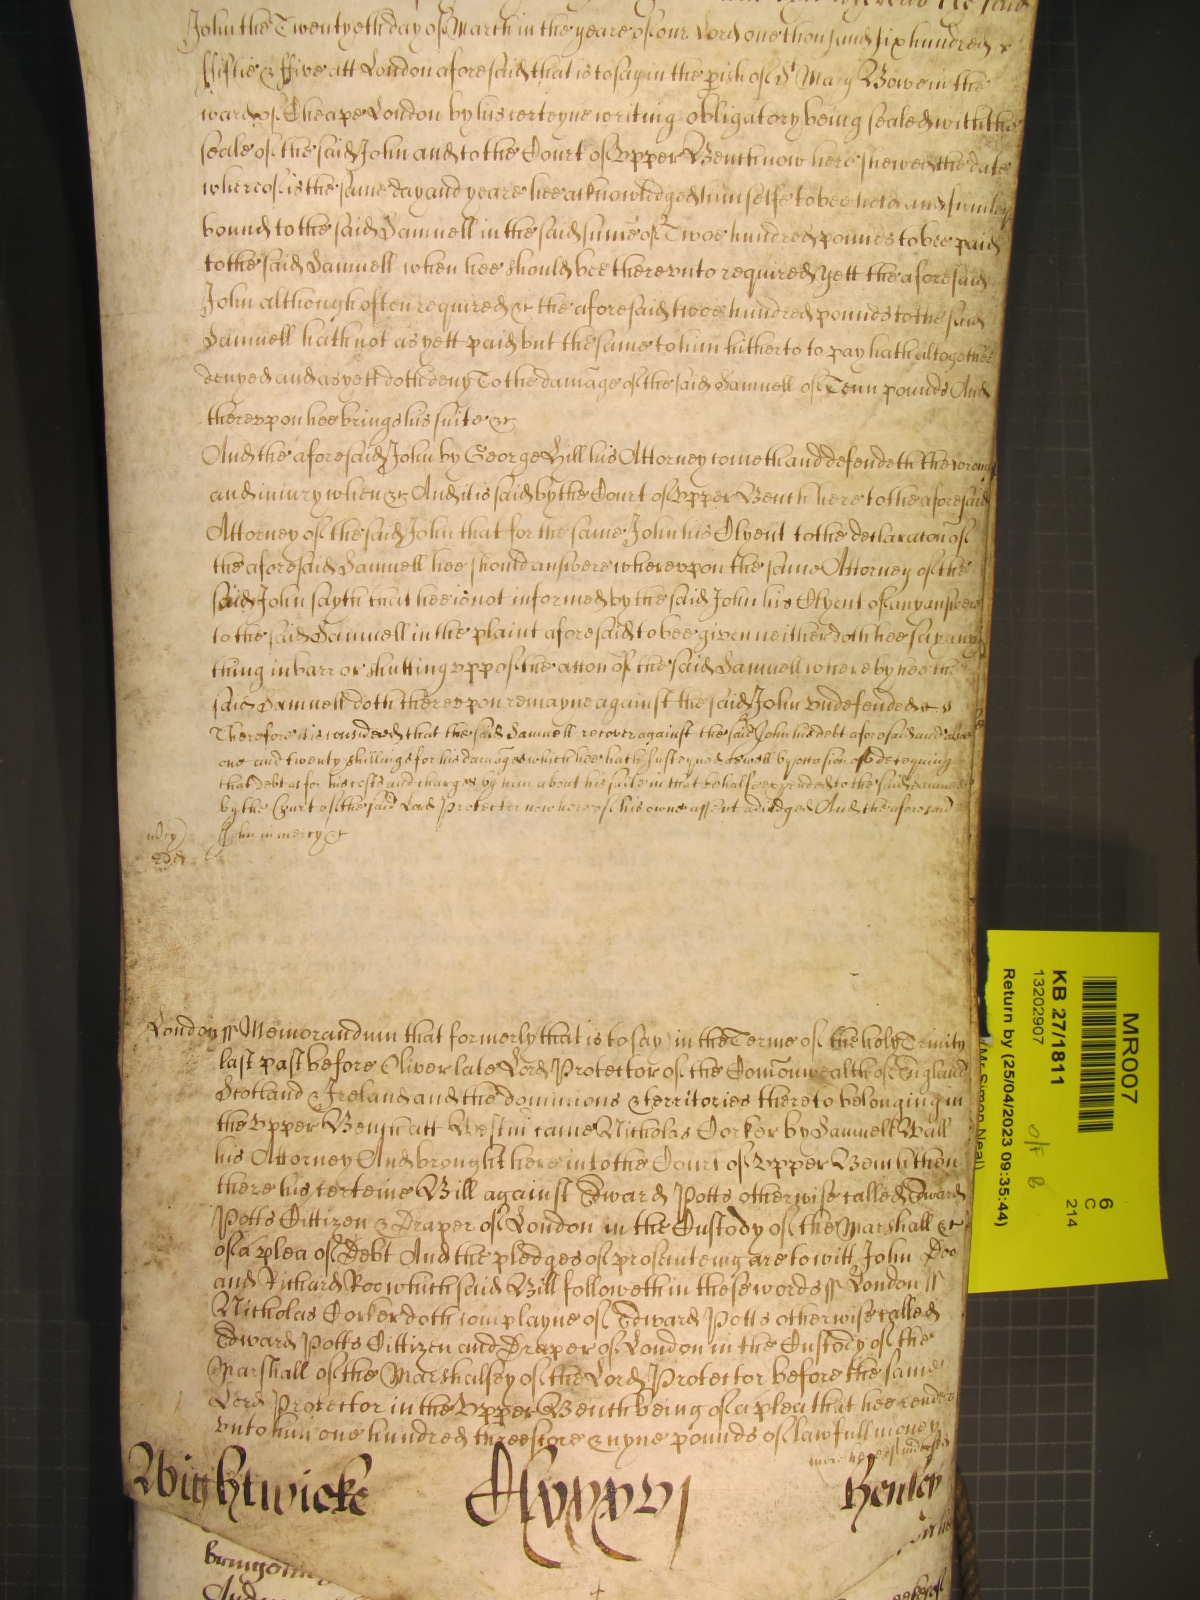 John the Twentyeth day of March in the yeare of our Lord one thousand six hundred
fiftie & ffive att London aforesaid that is to say in the pish of St Mary Bowe in the
ward of Cheape London by his certeyne writing obligatory being sealed with the
seale of the said John and to the Court of Upper Bench now here shewed the date
whereof is the same day and yeare hee acknowledged himselfe to bee held and firmley
bound to the said Samuell in the said sume of Twoe hundred pounds to bee paid
to the said Samuell when hee should bee thereunto required yett the aforesaid
John although often required &c the aforesaid twoe hundred pounds to the said
Samuell hath not as yett paid but the same to him hitherto to pay hath altogether
denyed and as yett doth deny To the damage of the said Samuell of Tenn pounds And
thereupon hee brings his suite &c
And the aforesaid John by George Hill his Attorney cometh and defendeth the wrong
and iniury when &c And it is said by the Court of Upper Bench here to the aforesaid
Attorney of the said John that for the same John his Clyent to the declaracon of
the aforesaid Samuell hee should answere whereupon the same Attorney of the
said John sayth that hee is not informed by the said John his Clyent of any answere
to the said Samuell in the plaint aforesaid to bee given neither doth hee say any
thing in barr or shutting upp of the accon of the said Samuell whereby hee the
said Samuell doth thereupon remayne against the said John undefended &c
Therefore it is considered that the said Samuell recover against the said John his debt aforesaid and alsoe
one and twenty shillings for his damages which hee hath susteyned aswell by occasion of deteyning
that debt as for his costs and charges by him about his suite in that behalfe expended to the said Samuell
by the Court of the said Lord Protector now here of his owne assent adiudged And the aforesaid
John in mercy &c
mcy
London ss Memorandum that formerly that is to say in the Terme of the holy Trinity
last past before Oliver late Lord Protector of the Comonwealth of England
Scotland & Ireland and the dominions & territories thereto belonging in
the Upper Bench att Westm came Nicholas Corker by Samuell Wall
his Attorney And brought here into the Court of Upper Bench then
there his certeine Bill against Edward Potts otherwise called Edward
Potts Cittizen & Draper of London in the Custody of the Marshall &c
of a plea of Debt And the pledges of prosecuteing are to witt John Doo
and Richard Roo which said Bill followeth in these words ss London ss
Nicholas Corker doth complayne of Edward Potts otherwise called
Edward Potts Cittizen and Draper of London in the Custody of the
Marshall of the Marshalsey of the Lord Protector before the same
Lord Protector in the Upper Bench being of a plea that hee render
unto him one hundred threescore & nyne pounds of lawfull money
Wightwicke Clxxxvj Henley
MR007
KB 27/1811
13202907
Return by (25/04/2023 09:35:44)
(Mr Simon Neal)
6
C
214
O/F B